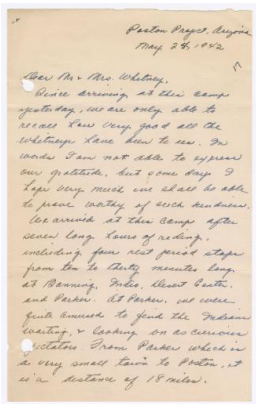 Poston Project, Arizona
May 28, 1942
Dear Mr & Mrs. Whitney,
Since arriving at this camp
yesterday, we are only able to
recall how very good all the
Whitneys have been to us. In
words I am not able to express
our gratitude, but some day I
hope very much we shall be able
to prove worthy of such kindness.
We arrived at this camp after
seven long hours of riding,
including four rest period stops
from ten to thirty minutes long,
at Banning, Indio, Desert Center,
and Parker. At Parker, we were
quite amused to find the Indians
waiting, & looking on as curious
spectators. From Parker which is
a very small town to Poston, it
is a distance of 18 miles.